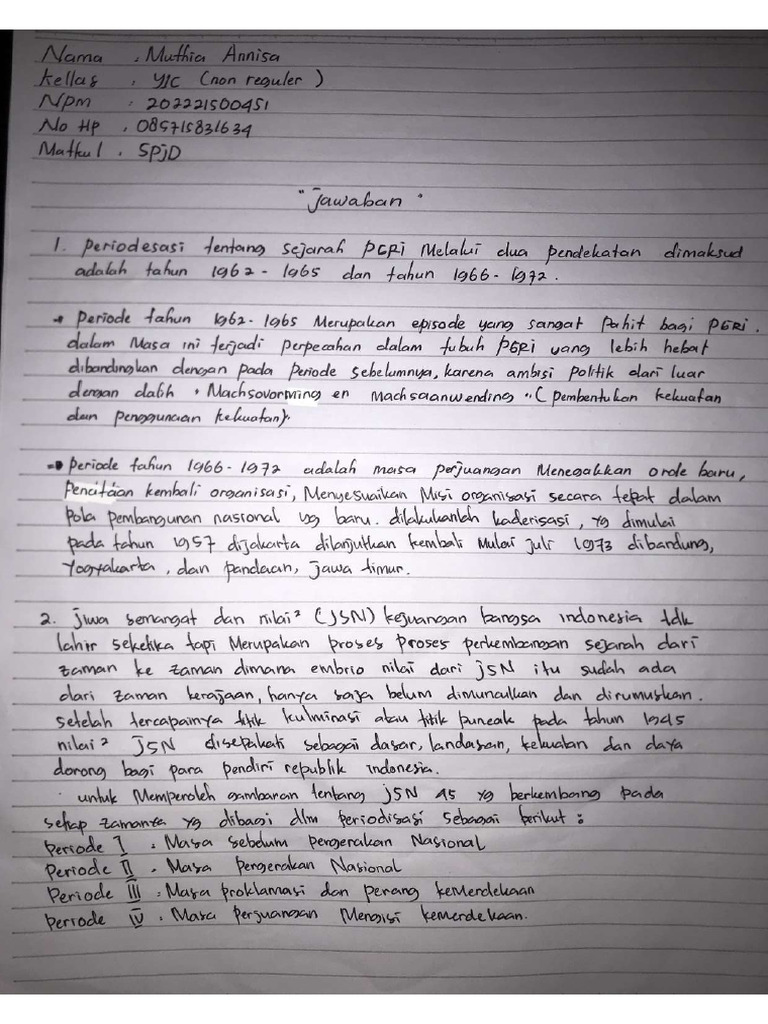 Nama : Muthia Annisa
Kellas : Y1C (non reguler)
Npm : 202221500451
No Hp : 085715831634
Matkul : SPJD
"Jawaban"
1. periodesasi tentang sejarah PGRI Melalui dua pendekatan dimaksud
adalah tahun 1962 - 1965 dan tahun 1966 - 1972.
→ periode tahun 1962 - 1965 Merupakan episode yang sangat Pahit bagi PGRI.
dalam Masa ini terjadi perpecahan dalam tubuh PGRI yang lebih hebat
dibandingkan dengan pada Periode sebelumnya, karena ambisi politik dari luar
dengan dalih "Machsovorming en Machsaanwending" (pembentukan kekuatan
dan penggunaan kekuatan).
→ periode tahun 1966 - 1972 adalah masa perjuangan Menegakkan orde baru,
Pencitaan kembali organisasi, Menyesuaikan Misi organisasi secara tepat dalam
Pola pembangunan nasional yg baru. dilakukanlah kaderisasi, yg dimulai
pada tahun 1957 dijakarta dilanjutkan kembali Mulai juli 1973 dibandung,
Yogyakarta, dan pandaan, jawa timur.
2. jiwa semangat dan nilai² (JSN) kejuangan bangsa indonesia tdk
lahir seketika tapi Merupakan proses proses perkembangan sejarah dari
zaman ke zaman dimana embrio nilai dari JSN itu sudah ada
dari zaman kerajaan, hanya saja belum dimunculkan dan dirumuskan.
setelah tercapainya titik kulminasi atau titik puncak pada tahun 1945
nilai² JSN disepakati sebagai dasar, landasan, kekuatan dan daya
dorong bagi para pendiri republik indonesia.
untuk Memperoleh gambaran tentang JSN 45 yg berkembang pada
setiap zamannya yg dibagi dlm periodisasi sebagai berikut :
Periode I : Masa sebelum pengerakan Nasional
Periode II : Masa pengerakan Nasional
Periode III : Masa proklamasi dan perang kemerdekaan
Periode IV : Masa perjuangan Mengisi kemerdekaan.